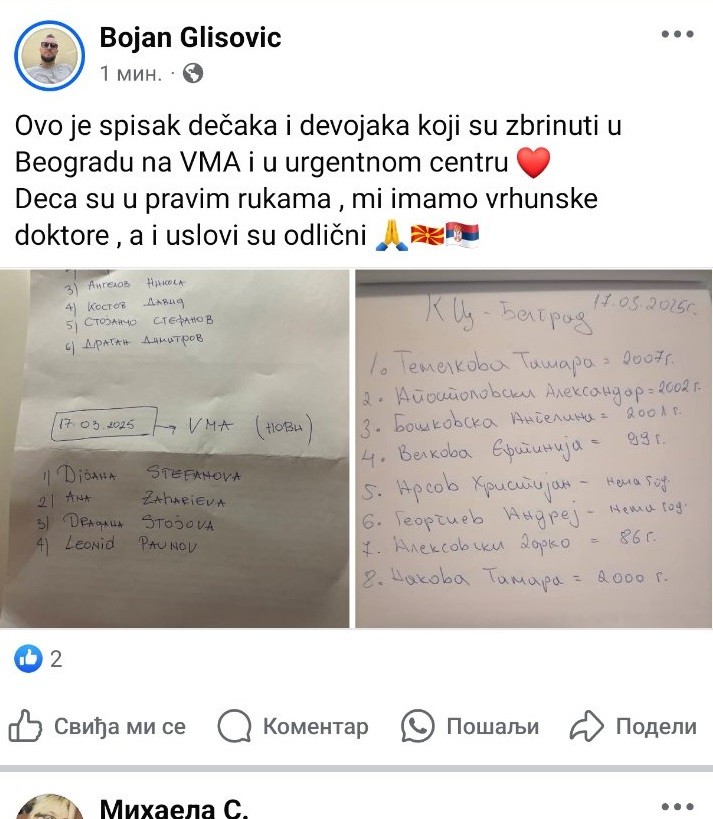 Bojan Glisovic
1 мин.
Ovo je spisak dečaka i devojaka koji su zbrinuti u
Beogradu na VMA i u urgentnom centru ❤️
Deca su u pravim rukama , mi imamo vrhunske
doktore , a i uslovi su odlični 🙏🇲🇰🇷🇸
3) Ангелов Никола
4) Костов Давид
5) Стојанчо Стефанов
6) Драган Димитров
17.03.2025 → VMA (НОВИ)
1) Dijana STEFANOVA
2) Ana ZAHARIEVA
3) Dragana STOJOVA
4) Leonid PAUNOV
КЦ - Белград 17.03.2025г.
1. Темелкова Тамара = 2007г.
2. Апостоловски Александар = 2002 г.
3. Бошковска Ангелина = 2001 г.
4. Велкова Ефтинија = 99 г.
5. Арсов Христијан - нема год.
6. Георгиев Андреј - нема год.
7. Алексовски Зорко = 86 г.
8. Дакова Тамара = 2000 г.
2
Свиђа ми се
Коментар
Пошаљи
Подели
Михаела С.